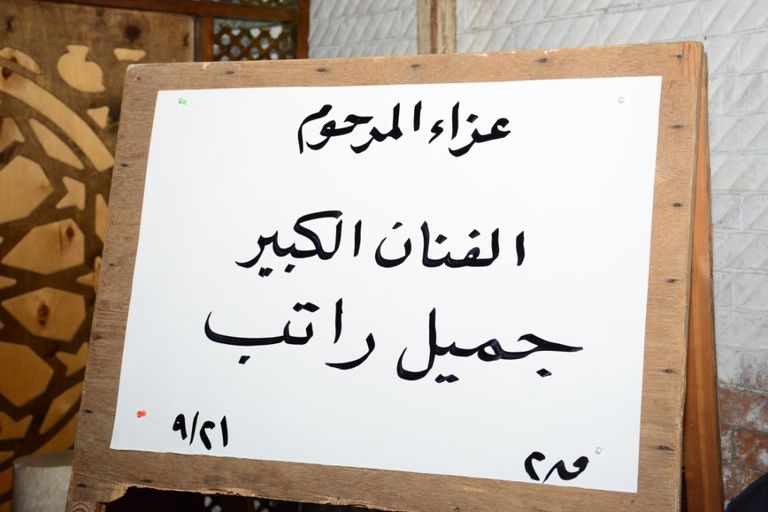 عزاء المرحوم
الفنان الكبير
جميل راتب
٩/٢١